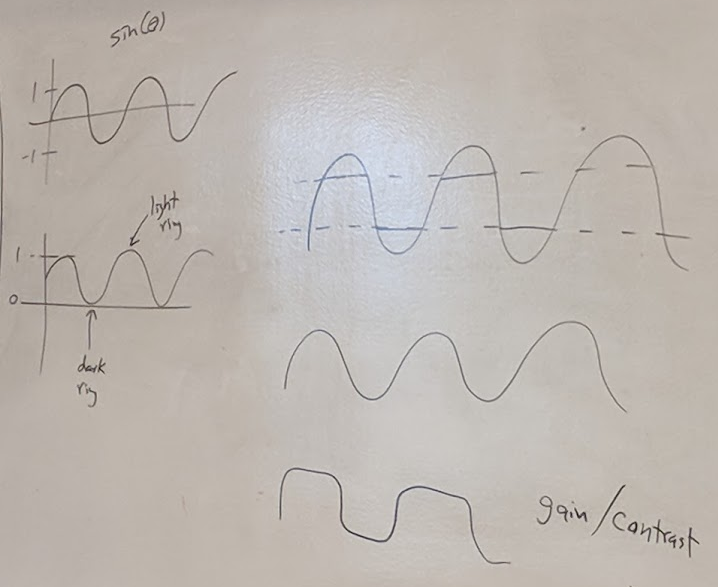 sin(θ)
1
-1
light
ring
1
0
dark
ring
gain/contrast